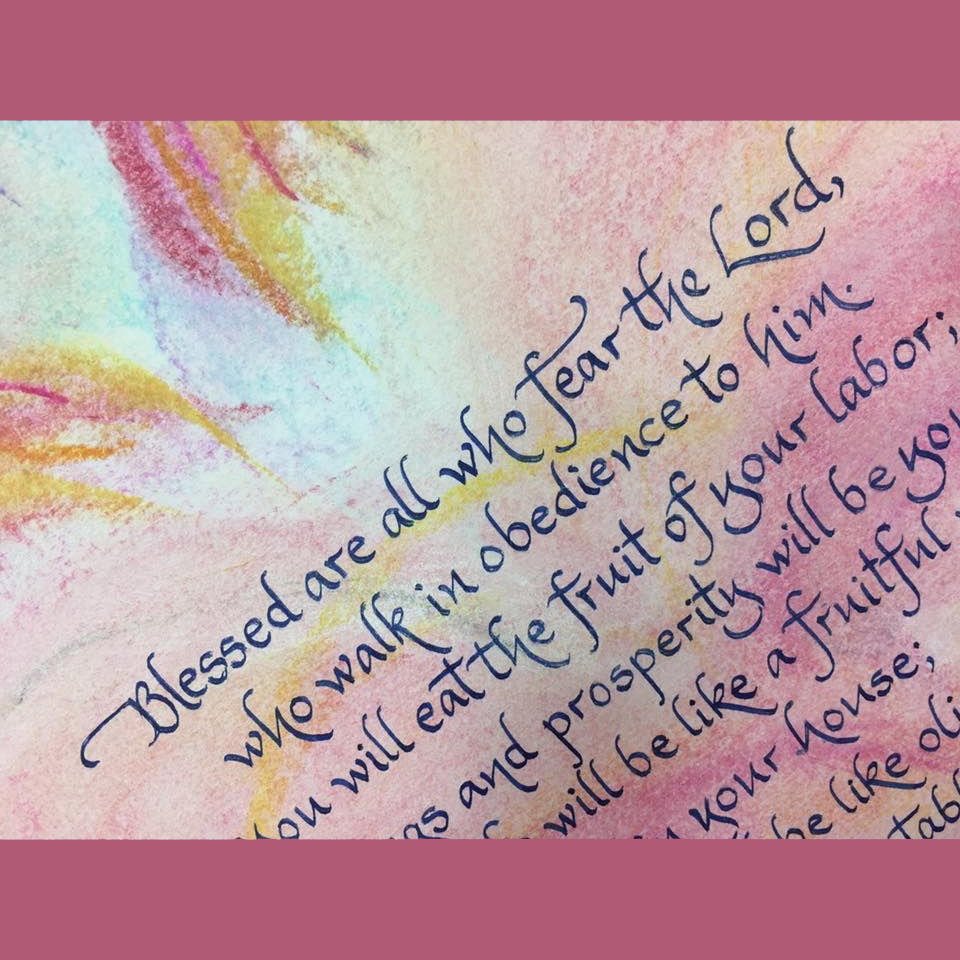 Blessed are all who fear the Lord,
who walk in obedience to him.
You will eat the fruit of your labor;
and prosperity will be
will be like a fruitful
your house;
be like